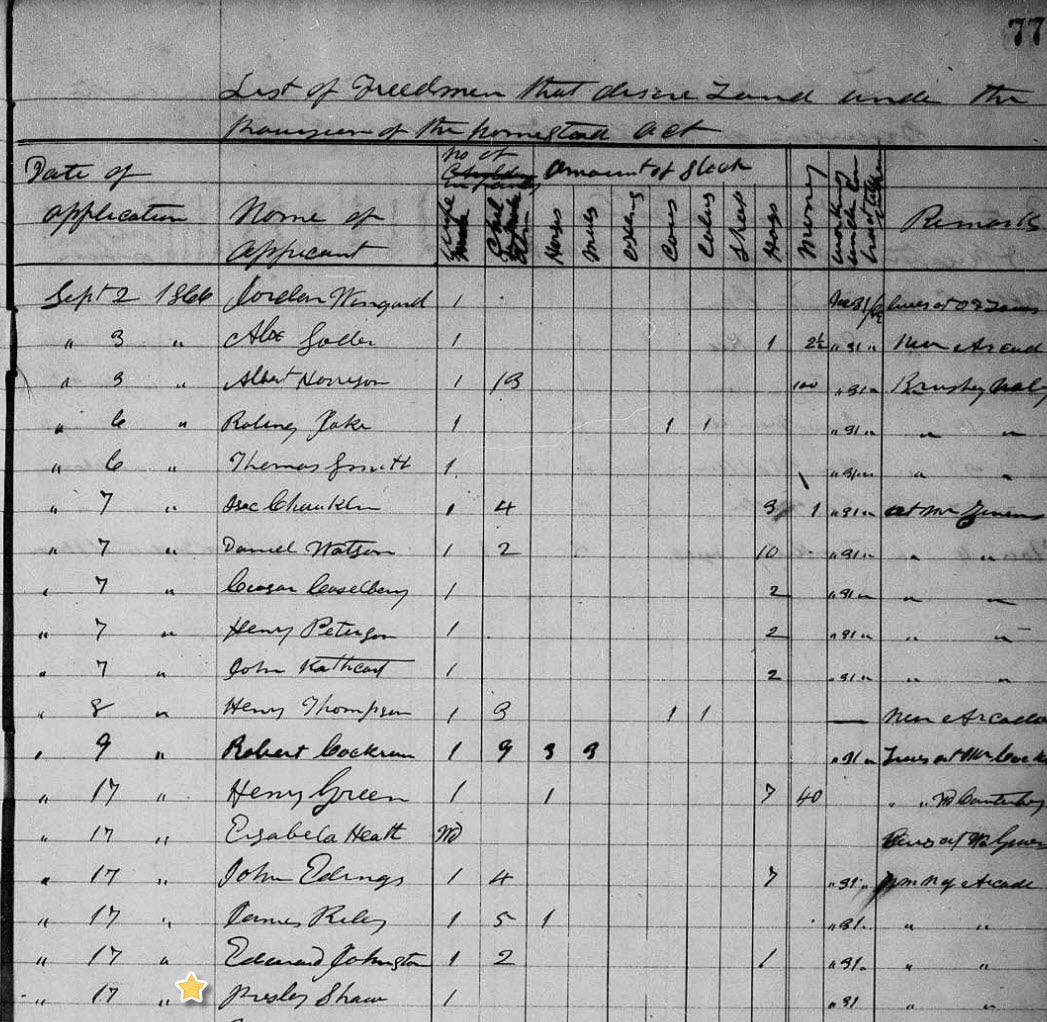 77
List of Freedmen that desire Land under the
Provision of the homestead act
Date of
application
Name of
Applicant
no of
Amount of Stock
Horses
Mules
Oxen
Cows
Calves
Sheep
Hogs
Money
Remarks
Sept 2 1866 Jordan Wingard 1 lives at
" 3 " Alex 1 1 2½ " 31 " Near Arcad
" 3 " Albert Horrison 1 13 100 " 31 " Brushy Valy
" 6 " Jake 1 1 1 " 31 " " "
" 6 " Thomas Smith 1 " 31 " " "
" 7 " Isec 1 4 3 1 " 31 " at Mr
" 7 " Daniel Watson 1 2 10 " 31 " " "
" 7 " 1 2 " 31 " " "
" 7 " Henry Peterson 1 2 " 31 " " "
" 7 " John Kathcart 1 2 " 31 " " "
" 8 " Henry Thompson 1 3 1 1 — Near Arcada
" 9 " Robert Cockrum 1 9 3 3 " 31 " Lives at Mr Cock
" 17 " Henry Green 1 1 7 40 " "
" 17 " Esabela Heath Wd Lives at
" 17 " John Edings 1 4 7 " 31 " Arcade
" 17 " James Riley 1 5 1 " 31 " " "
" 17 " Edward Johngton 1 2 1 " 31 " " "
" 17 " Presley Shaw 1 " 31 " "